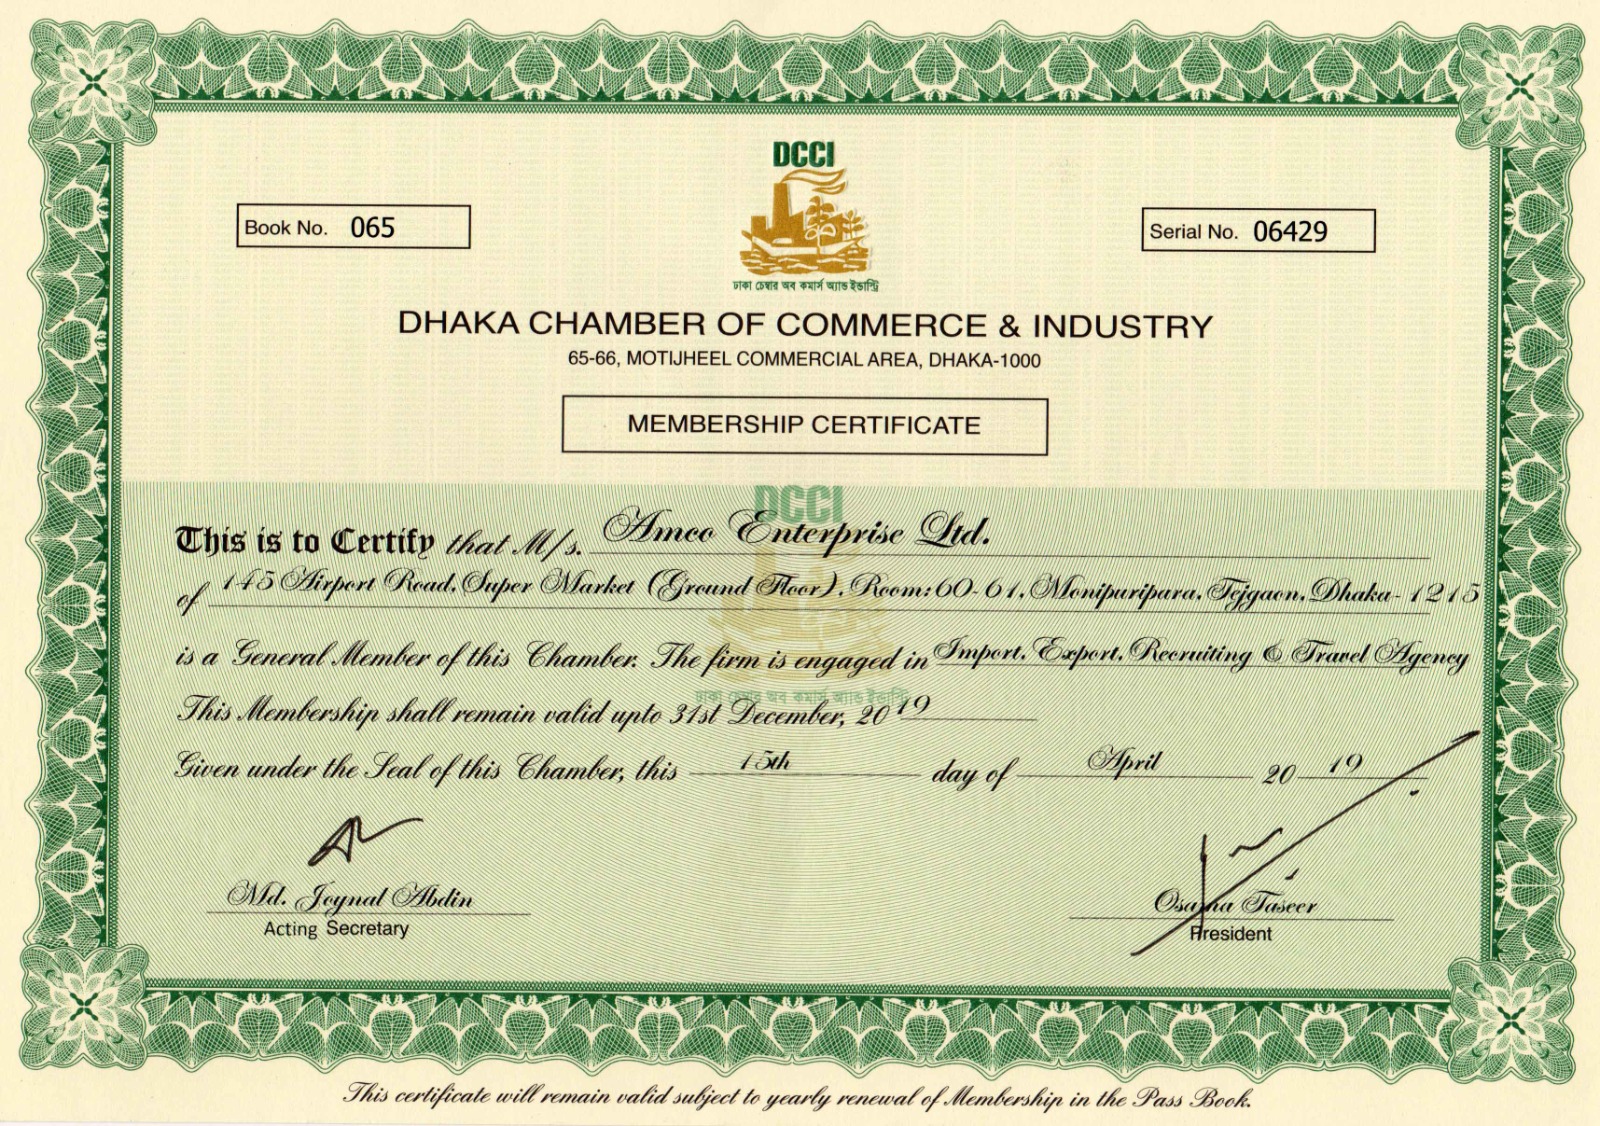 DCCI
ঢাকা চেম্বার অব কমার্স অ্যান্ড ইন্ডাস্ট্রি
Book No. 065
Serial No. 06429
DHAKA CHAMBER OF COMMERCE & INDUSTRY
65-66, MOTIJHEEL COMMERCIAL AREA, DHAKA-1000
MEMBERSHIP CERTIFICATE
DCCI
This is to Certify that M/s. Amco Enterprise Ltd.
of 145 Airport Road, Super Market (Ground Floor), Room: 60-61, Monipuripara, Tejgaon, Dhaka-1215
is a General Member of this Chamber. The firm is engaged in Import, Export, Recruiting & Travel Agency
ঢাকা চেম্বার অব কমার্স অ্যান্ড ইন্ডাস্ট্রি
This Membership shall remain valid upto 31st December, 2019
Given under the Seal of this Chamber, this 15th day of April 2019
Md. Joynal Abdin
Acting Secretary
Osama Taseer
President
This certificate will remain valid subject to yearly renewal of Membership in the Pass Book.